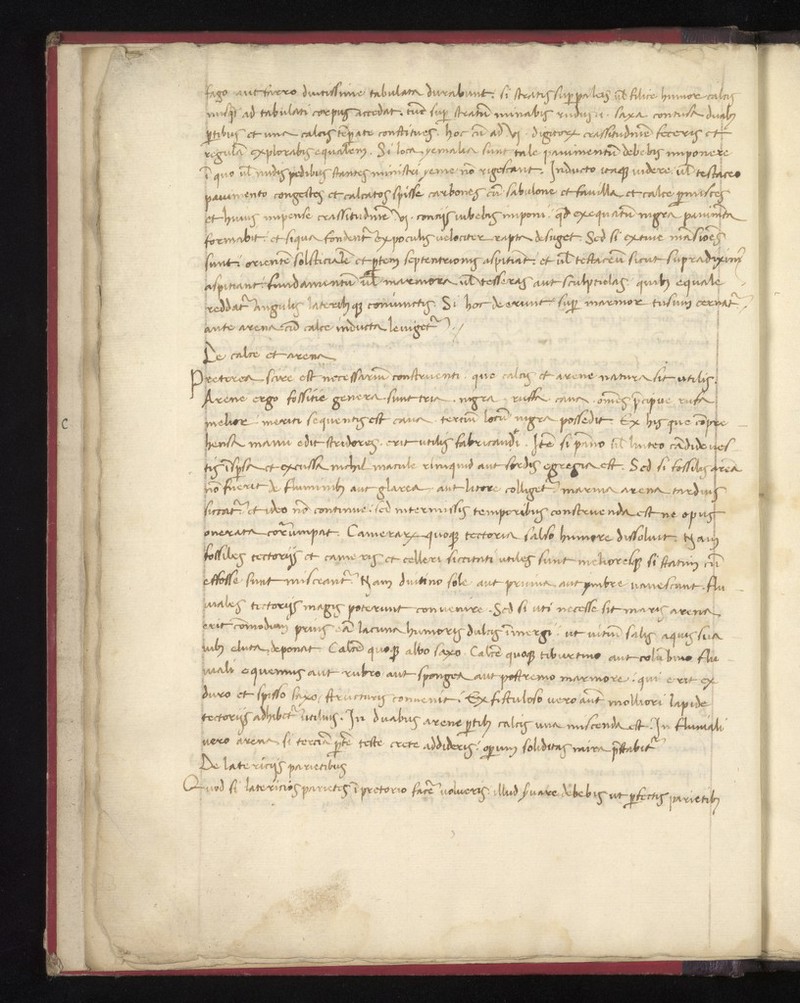 fago aut farro diutissime tabulata durabunt. si stratis sup paleis vl filice humor calcis
nusq ad tabulati corpus accedat. tunc sup stratu minabis rudus i. saxa contusa duabꝫ
ptibus et una calcis tepate constitues. hoc cu ad vi. digitorꝝ crassitudine feceris et
regula explorabis equalem. Si loca yemalia sunt tale pauimentu debebis imponere
i quo vl nudis pedibus stantes ministri yeme no rigescant. Inducto itaqꝫ videre vl testaceo
pauimento congestos et calcatos spisse carbones cu sabulone et fauilla et calce pmisces
et huius impense crassitudine vi. vncijs iubebis imponi. qd exequatu nigra pauimta
formabit. et siqua fondent ex poculis velociter rapta desuget. Sed si extiue masiones
sunt. oriente solsticiale et ptem septentrionis aspitiat. et vl testaceu sicut supradiximꝰ
aspitiant. fundamentu vl marmora vl tesseras aut sculptulas quibꝫ equale
reddat angulis lateribꝫqꝫ coniunctis. Si hoc deerunt sup marmor tusum cernat
ante arena cu calce inducta leuiget.
De calce et arena
Preterea scire est necessariu construenti. que calcis et arene natura sit utilis.
Arene ergo fossitie genera sunt tria. nigra. russa. cana. omes pcipue rufa
melior. meriti sequentis est cana. terciu locu nigra possedit. Ex his que copre
hensa manu edit stridores. erit utilis fabricandi. Ite si pano vl linteo cadide ues
tis ispsa et excussa nichil macule relinquid aut sordis egregia est. Sed si fossilis arena
no fuerit de fluminibꝫ aut glarea. aut litore colliget. marina arena tardius
siccat et ideo no continue. sed intermissis temporibus construenda est ne opus
onerata corrumpat. Camerarꝝ quoqꝫ tectoria salso humore dissoluit. Nam
fossiles tectorijs et cameris et celleri siccitati utiles sunt melioresqꝫ si statim cu
effosse sunt misceant. Nam diutino sole aut pruina aut ymbre vanescunt. Flu
uiales tectorijs magis poterunt conuenire. Sed si uti necesse sit maris arena
erit comodum prius ea lacuna humoris dulcis inmergi. ut vitiu salis aquis sua
uibꝫ eluta deponat. Calce quoqꝫ albo saxo. Calce quoqꝫ tiburtino aut colubino flu
uiali e quemus aut rubro aut spongea aut postremo marmore. qui erit ex
duro et spisso saxo structuris conuenit. Ex fistuloso vero aut molliori lapide
tectorijs adhibet utilius. In duabus arene ptibꝫ calcis una miscenda est. In fluuiali
vero arena si tercia pte teste crete addideris. operum soliditas mira pstabit
De latericijs parietibus
Quod si latericios parietes i pretorio facere uolueris. illud suare debebis ut pfectis parietibꝫ
C